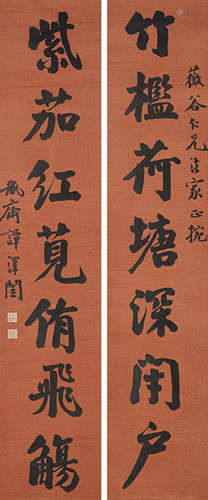 竹檻荷塘深閉户
薇谷仁兄法家正捥
紫茄紅莧侑飛觴
瓶齋譚澤闓